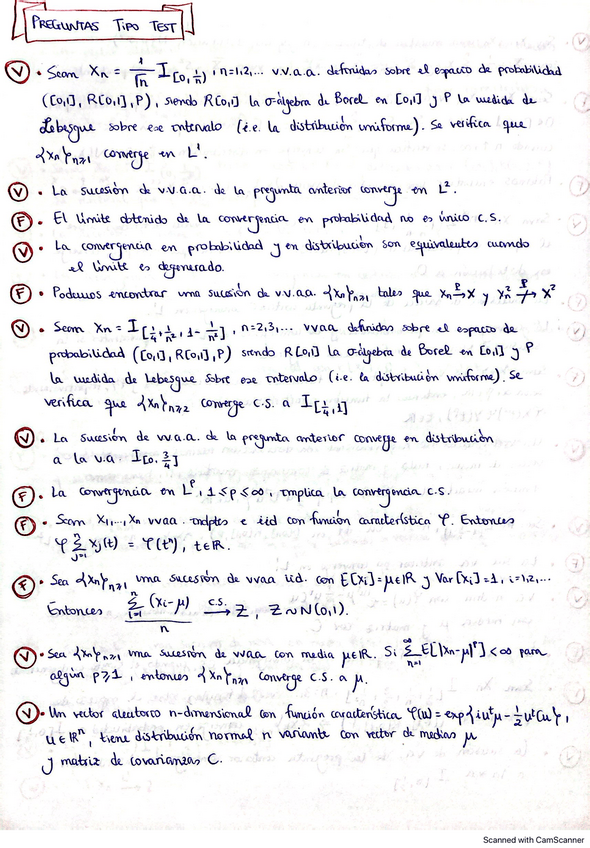 PREGUNTAS TIPO TEST
V • Sean Xn = 1/√n I[0,1/n), n=1,2,... v.v.a.a. definidas sobre el espacio de probabilidad
([0,1], R[0,1], P), siendo R[0,1] la σ-álgebra de Borel en [0,1] y P la medida de
Lebesgue sobre ese intervalo (i.e. la distribución uniforme). Se verifica que
{Xn}n≥1 converge en L¹.
V • La sucesión de v.v.a.a. de la pregunta anterior converge en L².
F • El límite obtenido de la convergencia en probabilidad no es único c.s.
V • La convergencia en probabilidad y en distribución son equivalentes cuando
el límite es degenerado.
F • Podemos encontrar una sucesión de v.v.a.a. {Xn}n≥1 tales que Xn →P X y Xn² ↛P X²
V • Sean Xn = I[1/4+1/n², 1-1/n²], n=2,3,... vvaa definidas sobre el espacio de
probabilidad ([0,1], R[0,1], P) siendo R[0,1] la σ-álgebra de Borel en [0,1] y P
la medida de Lebesgue sobre ese intervalo (i.e. la distribución uniforme). Se
verifica que {Xn}n≥2 converge c.s. a I[1/4,1]
V • La sucesión de vv.a.a. de la pregunta anterior converge en distribución
a la v.a. I[0,3/4]
F • La convergencia en Lᵖ, 1≤p≤∞, implica la convergencia c.s.
F • Sean X1,...,Xn vvaa. indptes e iid con función característica φ. Entonces
φ Σⁿj=1 Xj(t) = φ(tⁿ), t∈ℝ.
F • Sea {Xn}n≥1 una sucesión de vvaa iid. con E[Xi]=μ∈ℝ y Var[Xi]=1, i=1,2,...
Entonces Σⁿi=1 (Xi-μ) / n →c.s. Z, Z∼N(0,1).
V • Sea {Xn}n≥1 una sucesión de vvaa con media μ∈ℝ. Si Σ∞n=1 E[|Xn-μ|ᵖ]<∞ para
algún p≥1, entonces {Xn}n≥1 converge c.s. a μ.
V • Un vector aleatorio n-dimensional con función característica φ(u)=exp{iuᵗμ-½uᵗCu},
u∈ℝⁿ, tiene distribución normal n variante con vector de medias μ
y matriz de covarianzas C.
Scanned with CamScanner